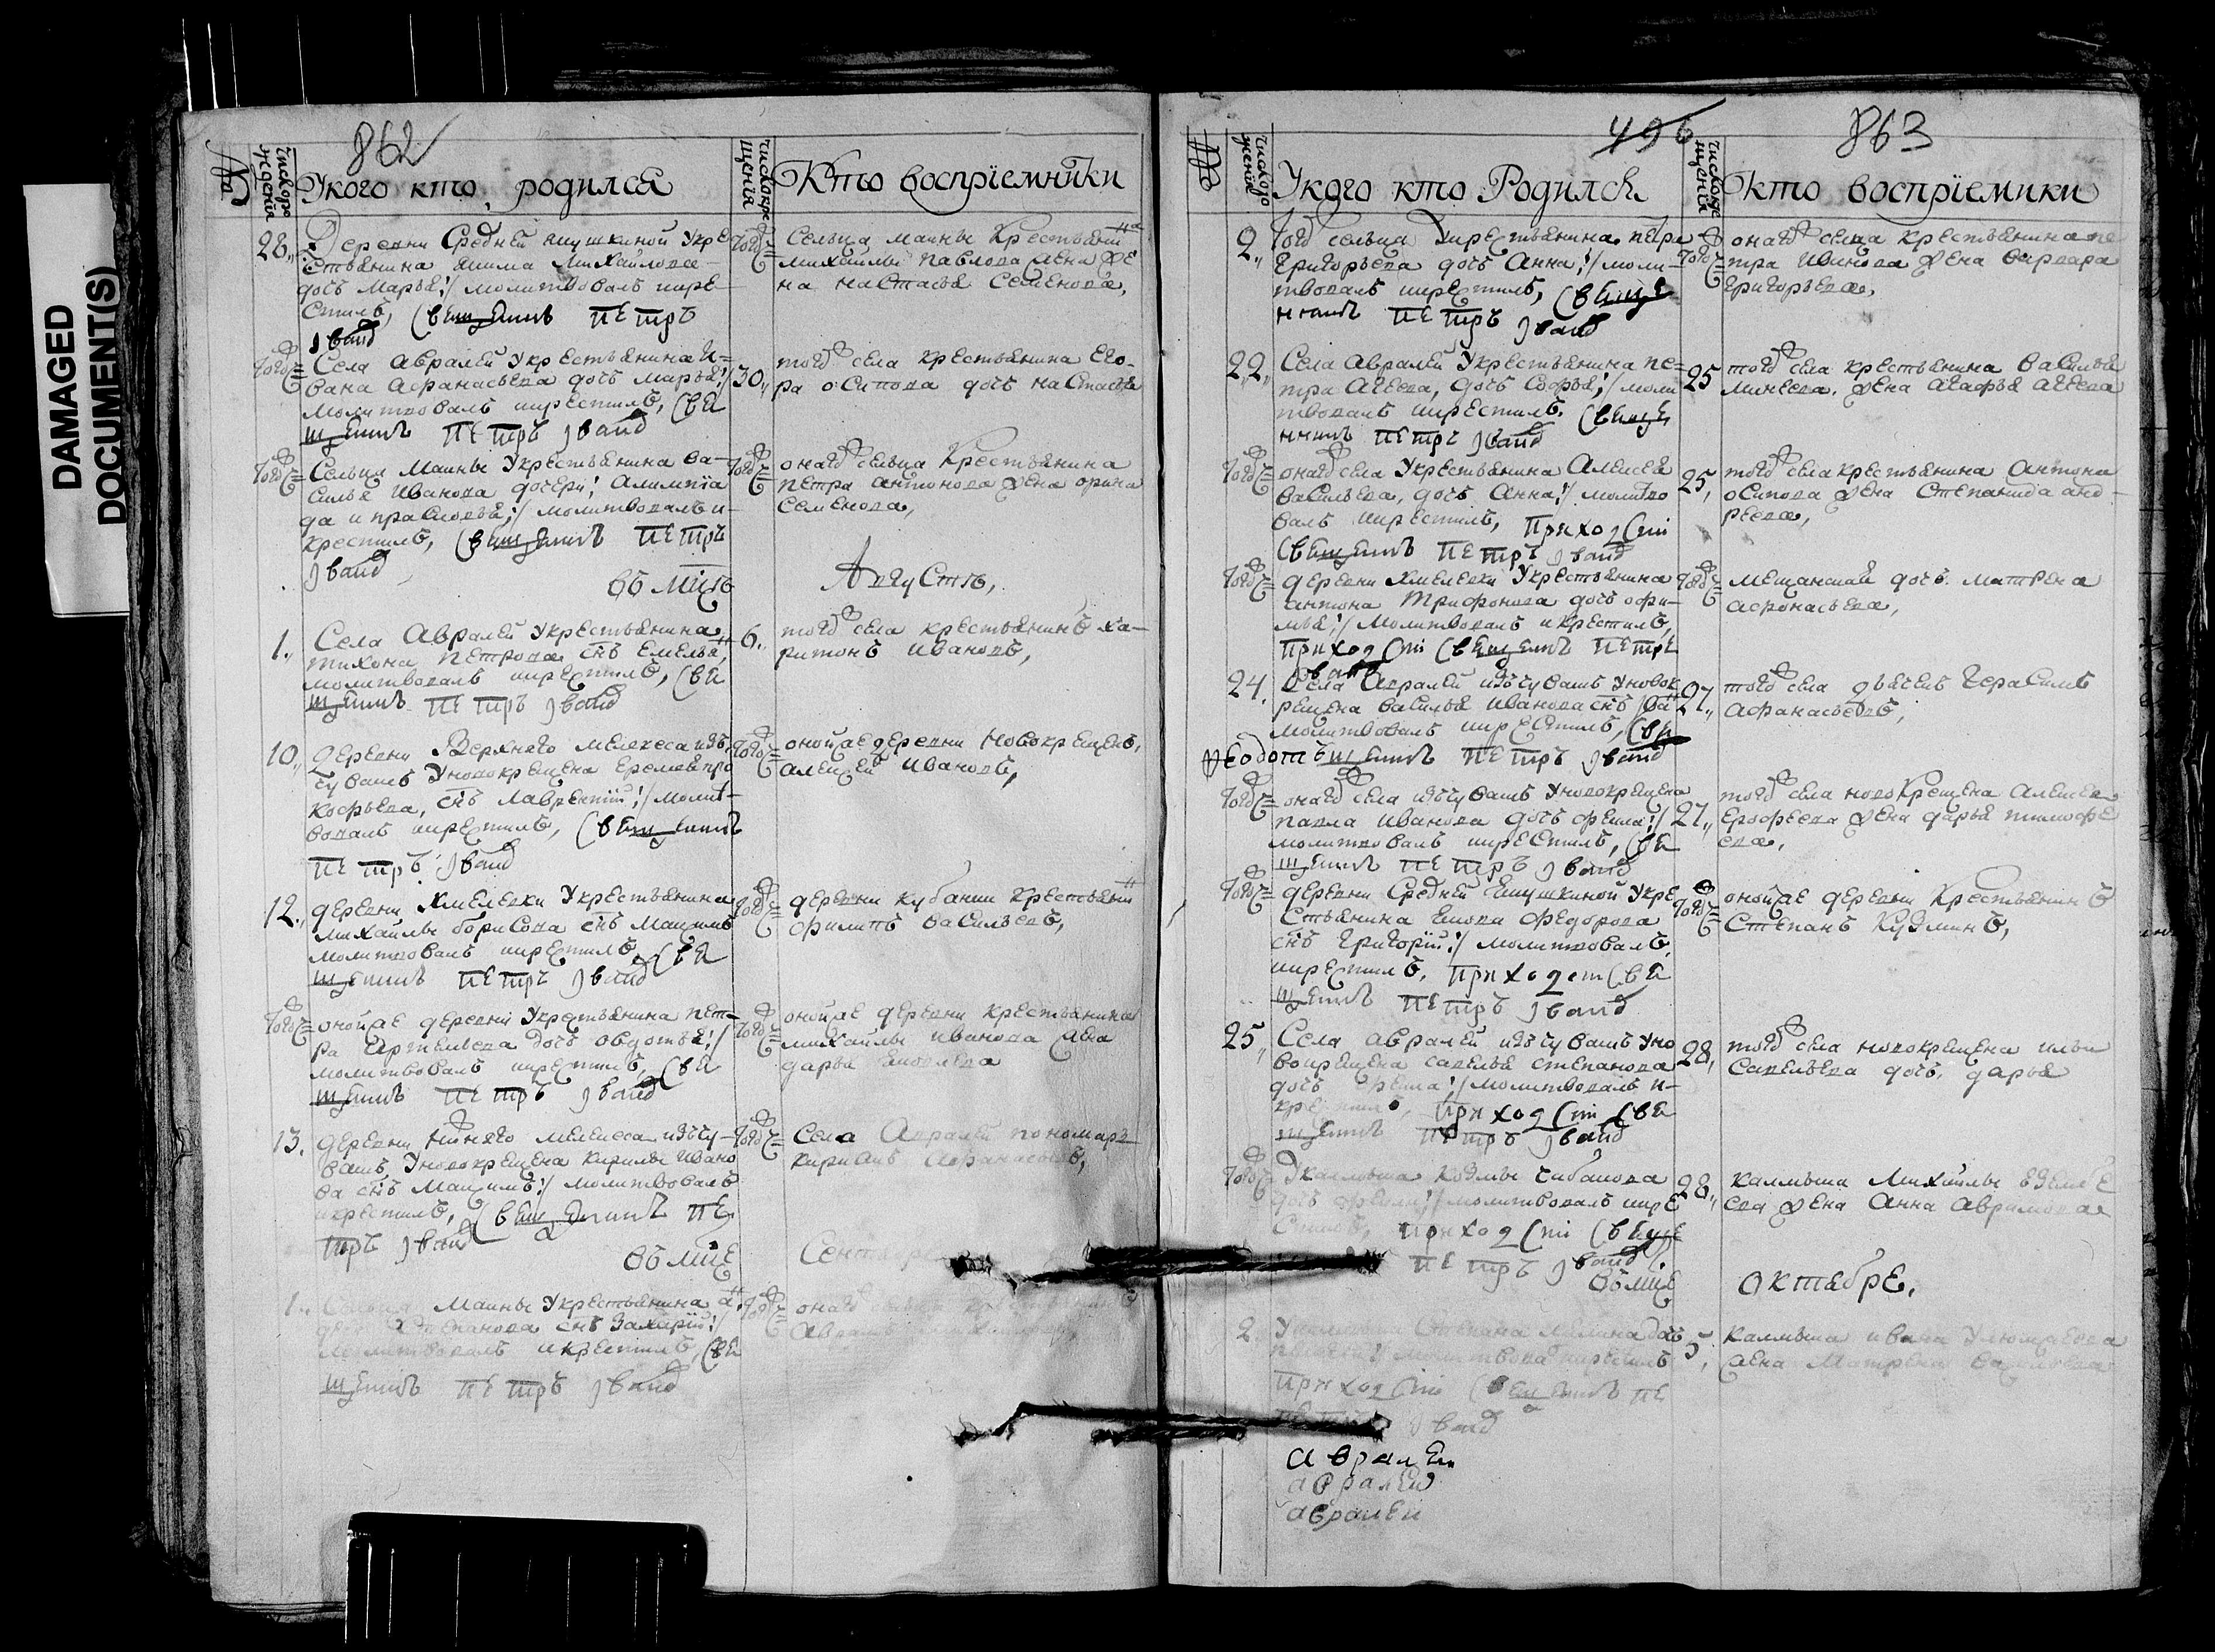 DAMAGED
DOCUMENT(S)
862
число рождения
У кого кто родился
число крещения
Кто восприемники
28 Деревни Средней якушкиной У кре
стьянина якима Михайлова
дочь Марья молитвовалъ и кре
стилъ, Священникъ Петръ
Ивано
того Села Авралей У крестьянина И=
вана Афанасьева дочь Марья
молитвовалъ и крестилъ, Свя
щенникъ Петръ Ивано
того Сельца Маины У крестьянина Ва-
силья Иванова дочери Алимпiа
да и прасковья молитвовалъ и
крестилъ, Священникъ Петръ
Ивано
того Сельца маины Крестьянина
михайлы павлова жена же
на настасья Семенова,
30 того села крестьянина Его-
ра осипова дочь настасья
того онаго сельца Крестьянина
петра антонова жена орина
Семенова,
въ мцѣ Августѣ,
1 Села Авралей У крестьянина
тихона петрова снъ Емельянъ
молитвовалъ и крестилъ, Свя
щенникъ Петръ Ивано
6 того села крестьянинъ ха-
ритонъ Ивановъ,
10 деревни Верхняго мелекеса изъ
чувашъ У новокрещена Еремея про
кофьева, снъ Лаврентiй молит-
вовалъ и крестилъ, Священникъ
Петръ Ивано
того оной же деревни новокрещенъ,
алексей Ивановъ,
12 деревни Хмелевки У крестьянина
михайлы борисова снъ Максимъ
молитвовалъ и крестилъ, Свя
щенникъ Петръ Ивано
того деревни кубанки крестьянинъ
филипъ васильевъ,
того оной же деревни У крестьянина пет-
ра Артемьева дочь овдотья
молитвовалъ и крестилъ, Свя
щенникъ Петръ Ивано
того оной же деревни крестьянина
михайлы иванова жена
дарья яковлева
13 деревни нижняго мелекеса изъ чу-
вашъ, У новокрещена Кирилы Ивано
ва снъ Максимъ молитвовалъ
и крестилъ, Священникъ Пе
тръ Ивано
того Села Авралей пономарь
Кирилъ Афанасьевъ,
въ мцѣ Сентябрѣ
1 Сельца Маины У крестьянина
Степанова снъ Захарiй
молитвовалъ и крестилъ, Свя
щенникъ Петръ Ивано
того онаго сельца крестьянинъ
496
863
число рождения
У кого кто Родился
число крещения
Кто восприемики
9 того сельца У крестьянина петра
Григорьева дочь Анна моли-
твовалъ и крестилъ, Священ
никъ Петръ Ивано
того онаго сельца крестьянина пе
тра Иванова жена варвара
Григорьева,
22 Села Авралей У крестьянина пе=
тра Агеева, дочь Софья моли
твовалъ и крестилъ, Священ
никъ Петръ Ивано
25 того села крестьянина василья
минеева, жена агафья агеева
того онаго села У крестьянина Алексея
Васильева, дочь Анна молитво
валъ и крестилъ, приходскiй
Священникъ Петръ Ивано
25 того села крестьянина антона
осипова жена Степанида анд-
реева,
того деревни Хмелевки У крестьянина
антона Трифонова дочь офи-
мья молитвовалъ и крестилъ,
приходскiй Священникъ Петръ
Ивано
того мещанская дочь матрена
афонасьева,
24 Села Авралей изъ чувашъ У новок
рещена василья Иванова снъ
молитвовалъ и крестилъ, Свя
Феодотъ щенникъ Петръ Ивано
27 того села дьячекъ Герасимъ
афанасьевъ,
того онаго села изъ чувашъ У новокрещена
павла Иванова дочь фекла
молитвовалъ и крестилъ, Свя
щенникъ Петръ Ивано
27 того села новокрещена Алексея
Ерофеева жена дарья тимофе
ева,
того деревни Средней Якушкиной У кре
стьянина Якова Федорова
снъ Григорiй молитвовалъ
и крестилъ, приходск Свя
щенникъ Петръ Ивано
того оной же деревни Крестьянинъ
Степанъ Кузминъ,
25 Села авралей изъ чувашъ У но
вокрещена савелья степанова
дочь фекла молитвовалъ и
крестилъ, приходскiй Свя
щенникъ Петръ Ивано
28 того села новокрещена ильи
Савельева дочь дарья
того У калмыка Козмы
дочь молитвовалъ и кре
стилъ, приходскiй Священ
никъ Петръ Ивано
28 калмыка Михайлы
жена Анна Аврамова
въ мцѣ октябрѣ,
2 У калмыка Степана дочь
молитвовалъ и крестилъ
приходскiй Священникъ Пе
Петръ Ивано
5 калмыка ивана
жена Матрена
авралеи
авралеи
авралеи